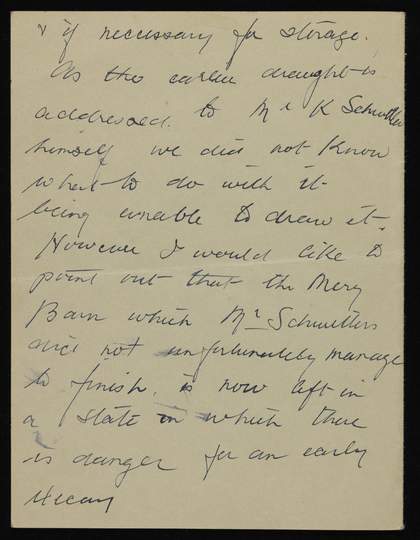 & if necessary for storage.
As the earlier draught is
addressed to Mr K Schwitters
himself we did not know
what to do with it
being unable to draw it.
However I would like to
point out that the Merz
Barn which Mr Schwitters
did not unfortunately manage
to finish, is now left in
a state in which there
is danger for an early
decay